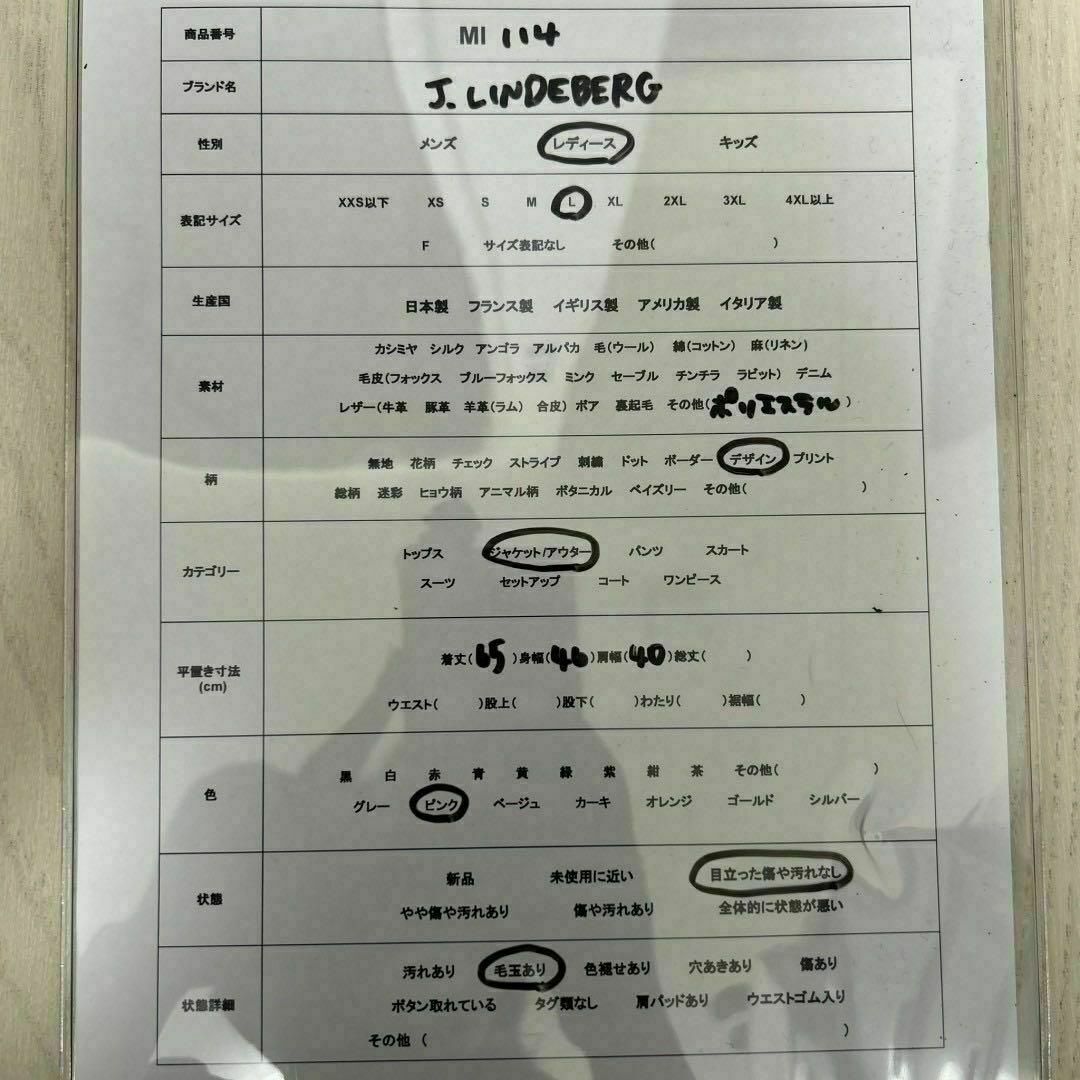 商品番号 MI 114
ブランド名 J.LINDEBERG
性別 メンズ レディース キッズ
表記サイズ XXS以下 XS S M L XL 2XL 3XL 4XL以上
F サイズ表記なし その他( )
生産国 日本製 フランス製 イギリス製 アメリカ製 イタリア製
素材 カシミヤ シルク アンゴラ アルパカ 毛(ウール) 綿(コットン) 麻(リネン)
毛皮(フォックス ブルーフォックス ミンク セーブル チンチラ ラビット) デニム
レザー(牛革 豚革 羊革(ラム) 合皮) ボア 裏起毛 その他(ポリエステル)
柄 無地 花柄 チェック ストライプ 刺繍 ドット ボーダー デザイン プリント
総柄 迷彩 ヒョウ柄 アニマル柄 ボタニカル ペイズリー その他( )
カテゴリー トップス ジャケット/アウター パンツ スカート
スーツ セットアップ コート ワンピース
平置き寸法 (cm) 着丈(65)身幅(46)肩幅(40)総丈( )
ウエスト( )股上( )股下( )わたり( )裾幅( )
色 黒 白 赤 青 黄 緑 紫 紺 茶 その他( )
グレー ピンク ベージュ カーキ オレンジ ゴールド シルバー
状態 新品 未使用に近い 目立った傷や汚れなし
やや傷や汚れあり 傷や汚れあり 全体的に状態が悪い
状態詳細 汚れあり 毛玉あり 色褪せあり 穴あきあり 傷あり
ボタン取れている タグ類なし 肩パッドあり ウエストゴム入り
その他 ( )